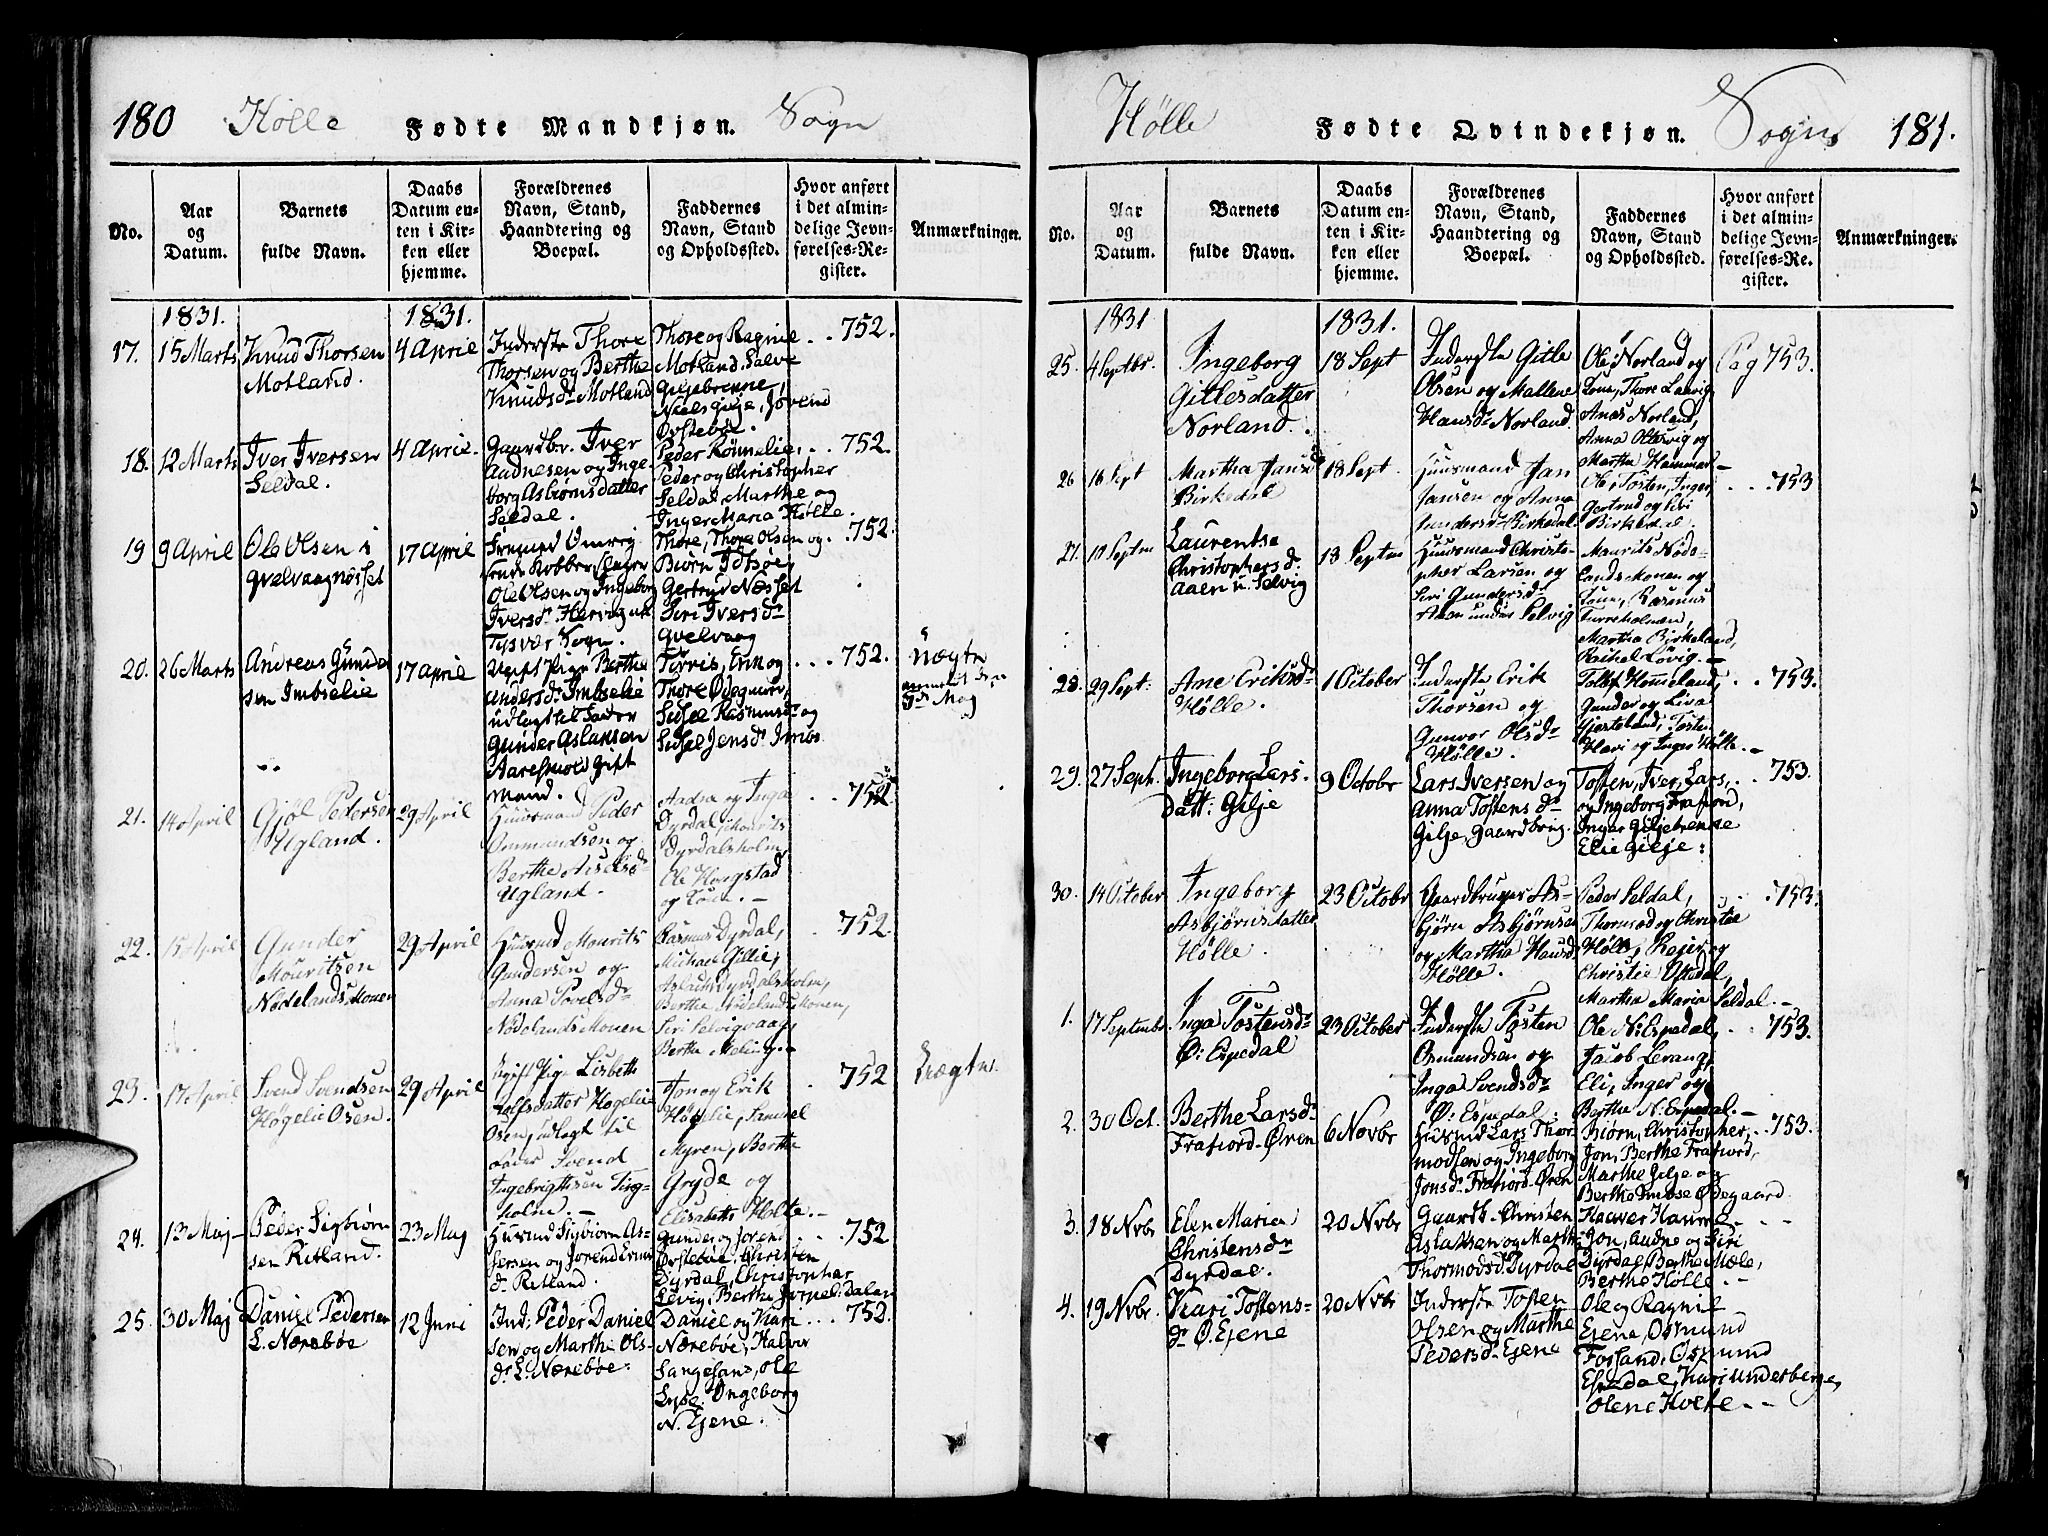 180 Hölle Fødte Mandkjøn. Sogn
No.
Aar
og
Datum.
Barnets
fulde Navn.
Daabs
Datum en-
ten i Kir-
ken eller
hjemme.
Forældrenes
Navn, Stand,
Haandtering og
Boepæl.
Faddernes
Navn, Stand
og Opholdssted.
Hvor anført
i det almin-
delige Jevn-
førelses-Re-
gister.
Anmærkninger.
1831.
1831.
17. 15 Marts
Knud Thorsen
Motland.
4 April
Inderste Thore
Thorsen og Berthe
Knudsdr Motland
Thore og Ragnie
Motland, Salve
Giljebrenne,
Niels Gilje, Jörend
Örstebøe.
752.
18. 12 Marts
Iver Iversen
Seldal.
4 April.
Gaardbr. Iver
Audnesen og Inge-
borg Asbiørnsdatter
Seldal.
Peder Rönnelie,
Peder og Christopher
Seldal, Marthe og
Inger Maria Hølle.
752.
19 9 April
Ole Olsen i
Qvelvaagnæsset
17 April
Ole Olsen og Ingeborg
Iversdr
Tysvær Sogn.
Thore, Thore Olsen og
Biörn Idsöe,
Gertrud Næsset
Siri Iversdr
Qvelvaag
752.
20. 26 Marts
Andreas Gunder
sen Imbselie
17 April
Ugift Pige Berthe
Andersdr Imbselie
udlagt til Fader
Gunder Aslaksen
gift
Mand.
Torris, Enn og
Thore Ødegaard,
Sidsel Rasmusdr og
Sidsel Jensdr Imbs
752.
Uægte
21. 14 April
Gjöl Pedersen
Ugland.
29 April
Huusmand Peder
Ommundsen og
Berthe
Ugland.
Aadne og Inga
Dyrdal, Mourits
Dyrdalsholm,
Ole Haugstad
og Kone. —
752
22. 15 April
Gunder
Mouritsen
Nödelands Monen
29 April
Huusmd Mourits
Gundersen og
Anna Povelsdr
Nödelands Monen
Rasmus Dyrdal,
Michael Gillie,
Aslach Dyrdalsholm,
Berthe Nödelandsmonen,
Siri Selvigvaag,
Berthe Meling. —
752.
23. 17 April
Svend Svendsen
Høgelie Osen.
29 April
Ugift Pige Lisbeth
Høgelie
Osen, udlagt til
Fader Svend
Ingebrigtsen Ting-
holm. —
Jon og Erik
Høgelie, Samuel
Myren, Berthe
Gryde og
Elisabeth Holte. —
752
Uægte.
24. 13 Maj
Peder Sigbiörn
sen Ritland.
23 Maj
Huusmd Sigbiörn As-
sersen og Jörend
dr Ritland.
Gunder og Jörend
Örstebøe, Christen
Dyrdal, Christopher
Levig, Berthe Jörpel. Dalan
752
25. 30 Maj
Daniel Pedersen
L. Nærebøe
12 Juni
Ind. Peder Daniel
sen og Marthe Ols-
dr L. Nærebøe.
Daniel og Kari
Nærebøe, Halver
Sangesand, Ole
Lyse. Ingeborg
N. Ejene.
752.
Hölle Fødte Qvindekjøn. Sogn 181.
No.
Aar
og
Datum.
Barnets
fulde Navn.
Daabs
Datum en-
ten i Kir-
ken eller
hjemme.
Forældrenes
Navn, Stand,
Haandtering og
Boepæl.
Faddernes
Navn, Stand
og Opholdssted.
Hvor anført
i det almin-
delige Jevn-
førelses-Re-
gister.
Anmærkninger.
1831
1831.
25. 4 Septbr.
Ingeborg
Gitlesdatter
Norland.
18 Sept
Inderste Gitle
Olsen og Mallene
Hansdr Norland.
Ole Norland og
Kone, Thore Levig,
Anas Norland,
Anna Oltesvig og
Martha Hammer —
Pag 753.
26 16 Sept
Martha Jansdr
Birkedal
18 Sept.
Huusmand Jan
Jansen og Anna
Gundersdr Birkedal.
Ole, Tosten, Inger,
Gertrud og Siri
Birkedal.
753
27. 10 Septm
Laurentse
Christophersdr
Aaen u. Selvig
18 Septm
Huusmand Christo-
pher Larsen og
Siri Gundersdr
Aaen under Selvig
Maurits Nöde-
lands Monen og
Kone, Rasmus
Turreholmen,
Martha Birkeland,
Rachel Lövig. —
28. 29 Sept.
Ane Eriksdr
Hölle.
1 October
Inderste Erik
Thorsen og
Gunvor Olsdr
Hölle.
Tollef Hommeland,
Gunder og Liva
Gjerteland, Tosten
Havi og Inger Hölle. —
753.
29. 27 Sept.
Ingeborg Lars-
Datt: Gilje
9 Octobr
Lars Iversen og
Anna Tostensdr
Gilje, Gaardbrug.
Tosten, Iver, Lars,
og Ingeborg Frafiord,
Inger Giljebrenne
Elie Gilje:
753.
30. 14 October
Ingeborg
Asbjørnsdatter
Hølle
23 Octobr
Gaardbruger As-
bjørn Asbjørnsen
og Martha Hansd
Hølle.
Peder Seldal,
Thormod og Christie
Hölle, Reier og
Christie Oftedal,
Martha Maria Seldal. —
753.
1. 17 Septembr
Inga Tostensdr
Ø: Espedal
23 October
Inderste Tosten
Osmundsen og
Inga Svendsdr
Ø: Espedal.
Ole N: Espedal,
Jacob Levang,
Eli, Inger og
Berthe N: Espedal. —
753.
2. 30 Oct.
Berthe Larsdr
Frafiord-Øren
6 Novbr
Huusmd Lars Thor-
modsen og Ingeborg
Jonsdr Frafiord-Øren
Biørn, Christopher,
Jon, Berthe Frafiord,
Marthe Gilje og
Berthe Imbse Ødegaard.
753.
3. 18 Nvbr
Elen Maria
Christensdr
Dyrdal.
20 Nvbr
Gaardb. Christen
Aslaksen og Marthe
Thormodsd. Dyrdal
Haaver
Jon, Audne og Siri
Dyrdal, Berthe Mæle,
Berthe Hølle. —
4. 19 Nvbr.
Kari Tostens-
dr Ø. Ejene
20 Nvbr
Inderste Tosten
Olsen og Marthe
Pedersd. Ejene
Ole og Ragnil
Ejene, Osmund
Fossand, Osmund
Espedal, Kari Underberge,
Olene Holte. —